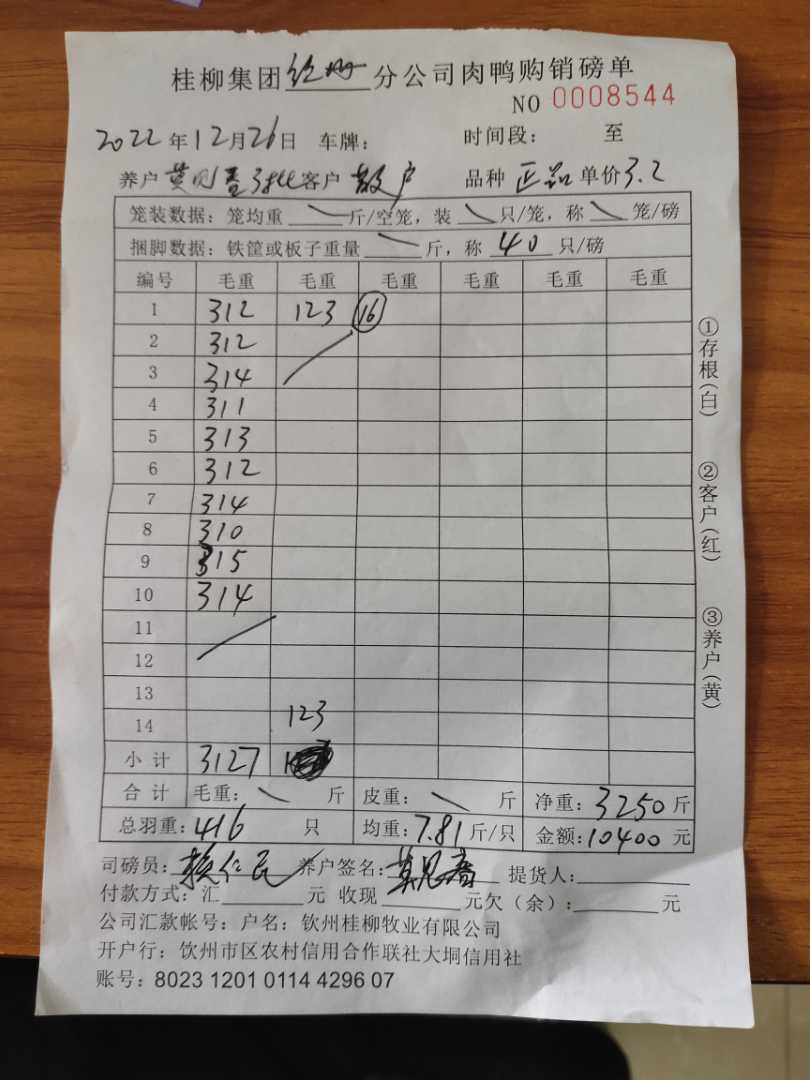 桂柳集团 分公司肉鸭购销磅单
NO 0008544
2022年12月26日 车牌: 时间段: 至
养户 黄 批 客户 散户 品种 正品 单价 3.2
笼装数据: 笼均重 \ 斤/空笼, 装 \ 只/笼, 称 \ 笼/磅
捆脚数据: 铁筐或板子重量 \ 斤, 称 40 只/磅
编号 毛重 毛重 毛重 毛重 毛重 毛重
1 312 123 16
2 312
3 314
4 311
5 313
6 312
7 314
8 310
9 315
10 314
11
12
13
14 123
小计 3127
合计 毛重: \ 斤 皮重: \ 斤 净重: 3250 斤
总羽重: 416 只 均重: 7.81 斤/只 金额: 10400 元
司磅员: 赖仁民 养户签名: 提货人:
付款方式: 汇 元 收现 元欠(余): 元
公司汇款帐号: 户名: 钦州桂柳牧业有限公司
开户行: 钦州市区农村信用合作联社大垌信用社
账号: 8023 1201 0114 4296 07
①存根(白)
②客户(红)
③养户(黄)